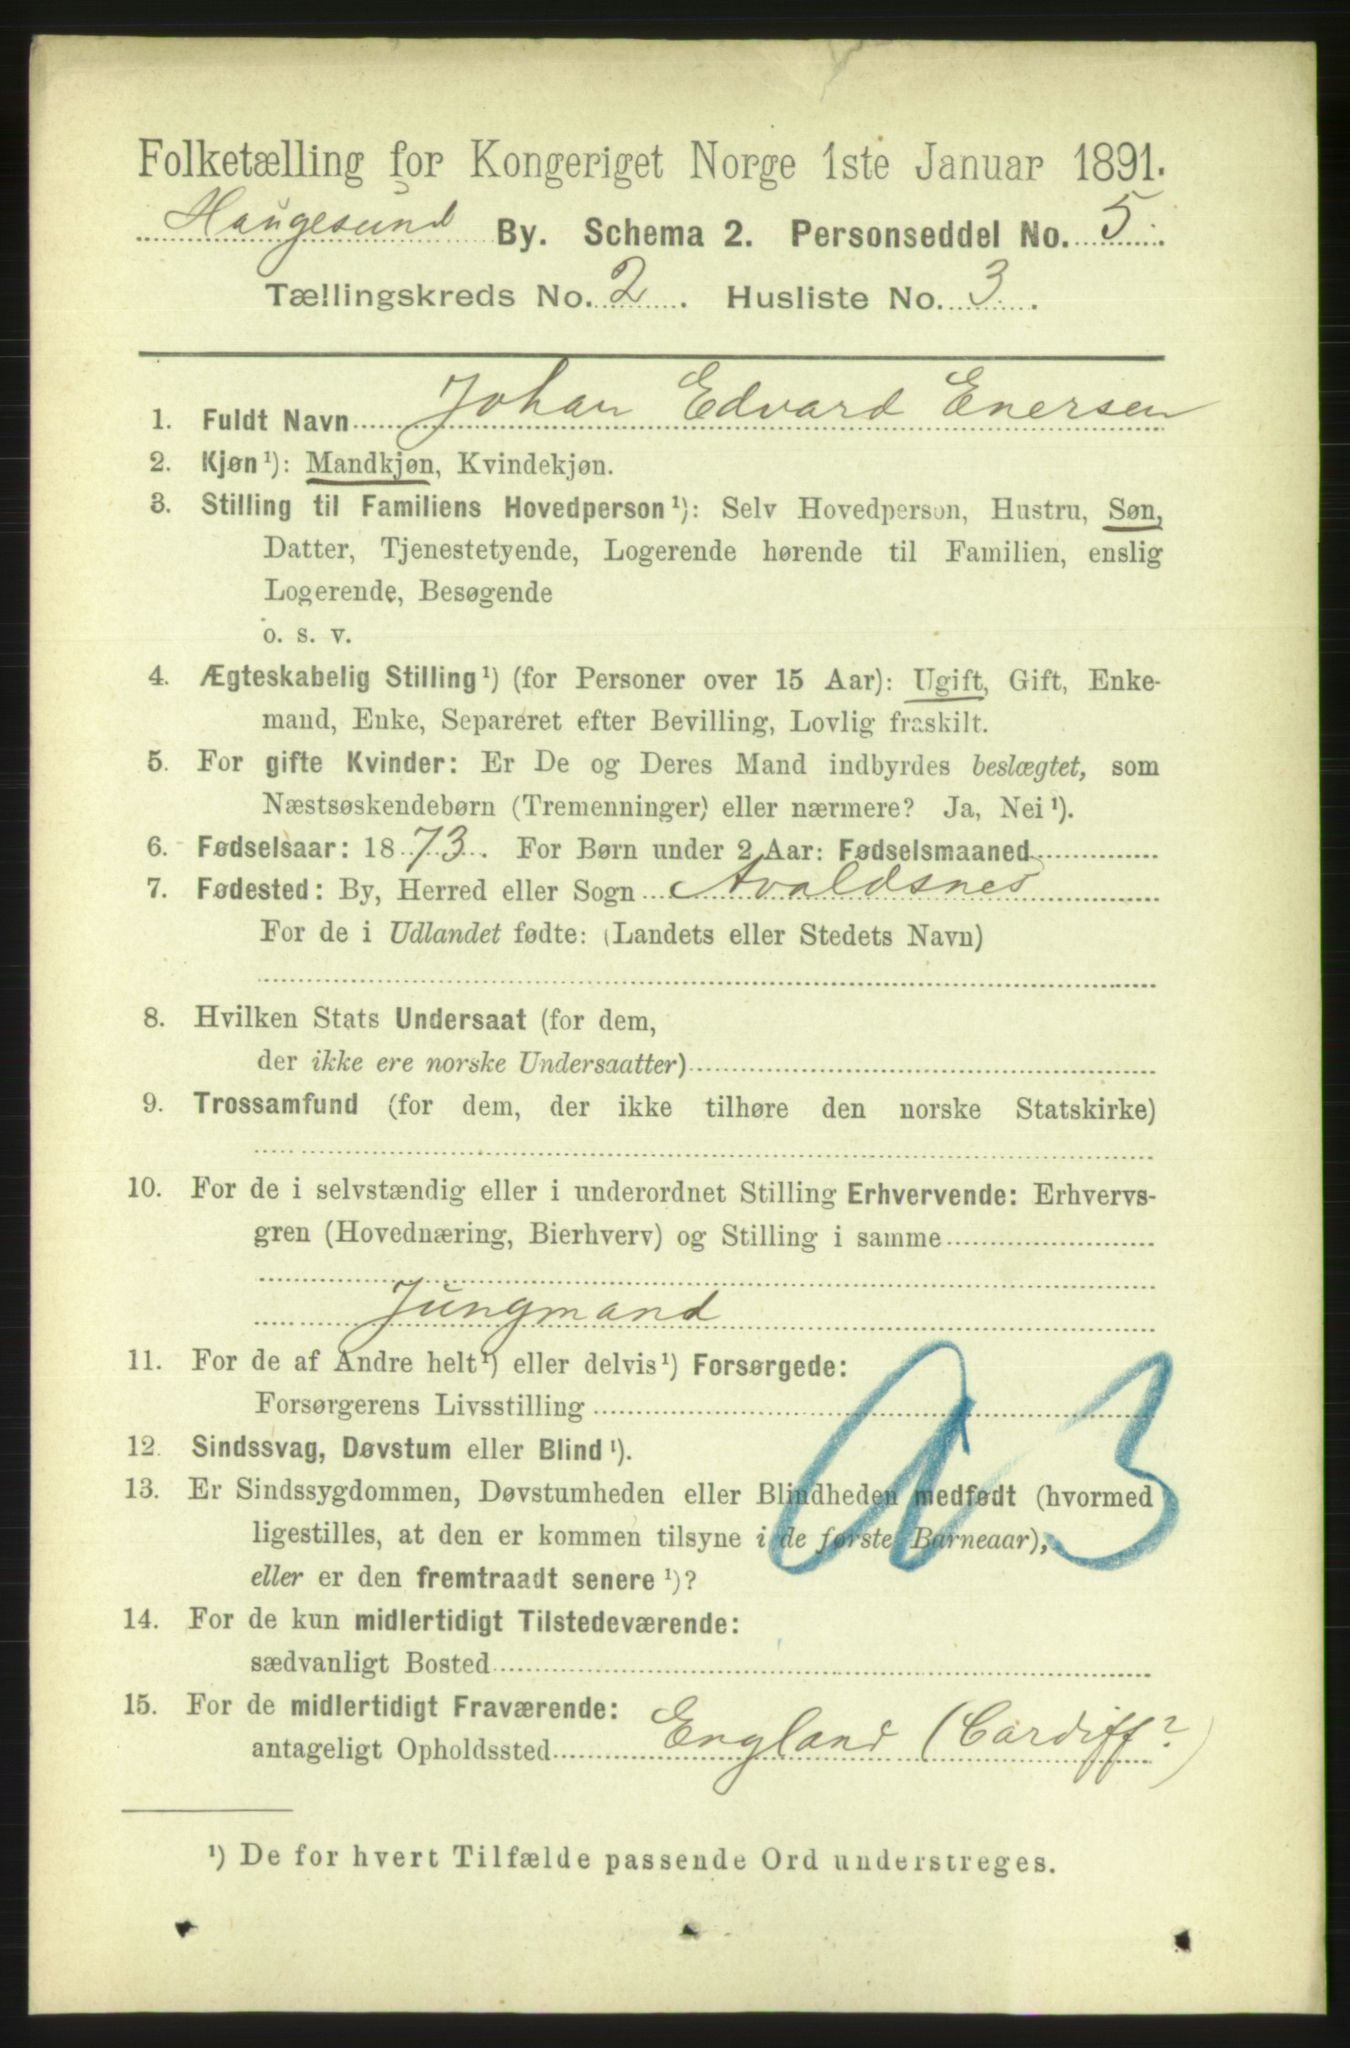 Folketælling for Kongeriget Norge 1ste Januar 1891.
Haugesund By. Schema 2. Personseddel No. 5.
Tællingskreds No. 2. Husliste No. 3.
1. Fuldt Navn Johan Edvard Enersen
2. Kjøn¹): Mandkjøn, Kvindekjøn.
3. Stilling til Familiens Hovedperson¹): Selv Hovedperson, Hustru, Søn,
Datter, Tjenestetyende, Logerende hørende til Familien, enslig
Logerende, Besøgende
o. s. v.
4. Ægteskabelig Stilling¹) (for Personer over 15 Aar): Ugift, Gift, Enke-
mand, Enke, Separeret efter Bevilling, Lovlig fraskilt.
5. For gifte Kvinder: Er De og Deres Mand indbyrdes beslægtet, som
Næstsøskendebørn (Tremenninger) eller nærmere? Ja, Nei¹).
6. Fødselsaar: 1873. For Børn under 2 Aar: Fødselsmaaned
7. Fødested: By, Herred eller Sogn Avaldsnes
For de i Udlandet fødte: (Landets eller Stedets Navn)
8. Hvilken Stats Undersaat (for dem,
der ikke ere norske Undersaatter)
9. Trossamfund (for dem, der ikke tilhøre den norske Statskirke)
10. For de i selvstændig eller i underordnet Stilling Erhvervende: Erhvervs-
gren (Hovednæring, Bierhverv) og Stilling i samme
Jungmand
11. For de af Andre helt¹) eller delvis¹) Forsørgede:
Forsørgerens Livsstilling
12. Sindssvag, Døvstum eller Blind¹).
13. Er Sindssygdommen, Døvstumheden eller Blindheden medfødt (hvormed
ligestilles, at den er kommen tilsyne i de første Barneaar),
eller er den fremtraadt senere¹)?
14. For de kun midlertidigt Tilstedeværende:
sædvanligt Bosted
15. For de midlertidigt Fraværende:
antageligt Opholdssted England (Cardiff?)
¹) De for hvert Tilfælde passende Ord understreges.